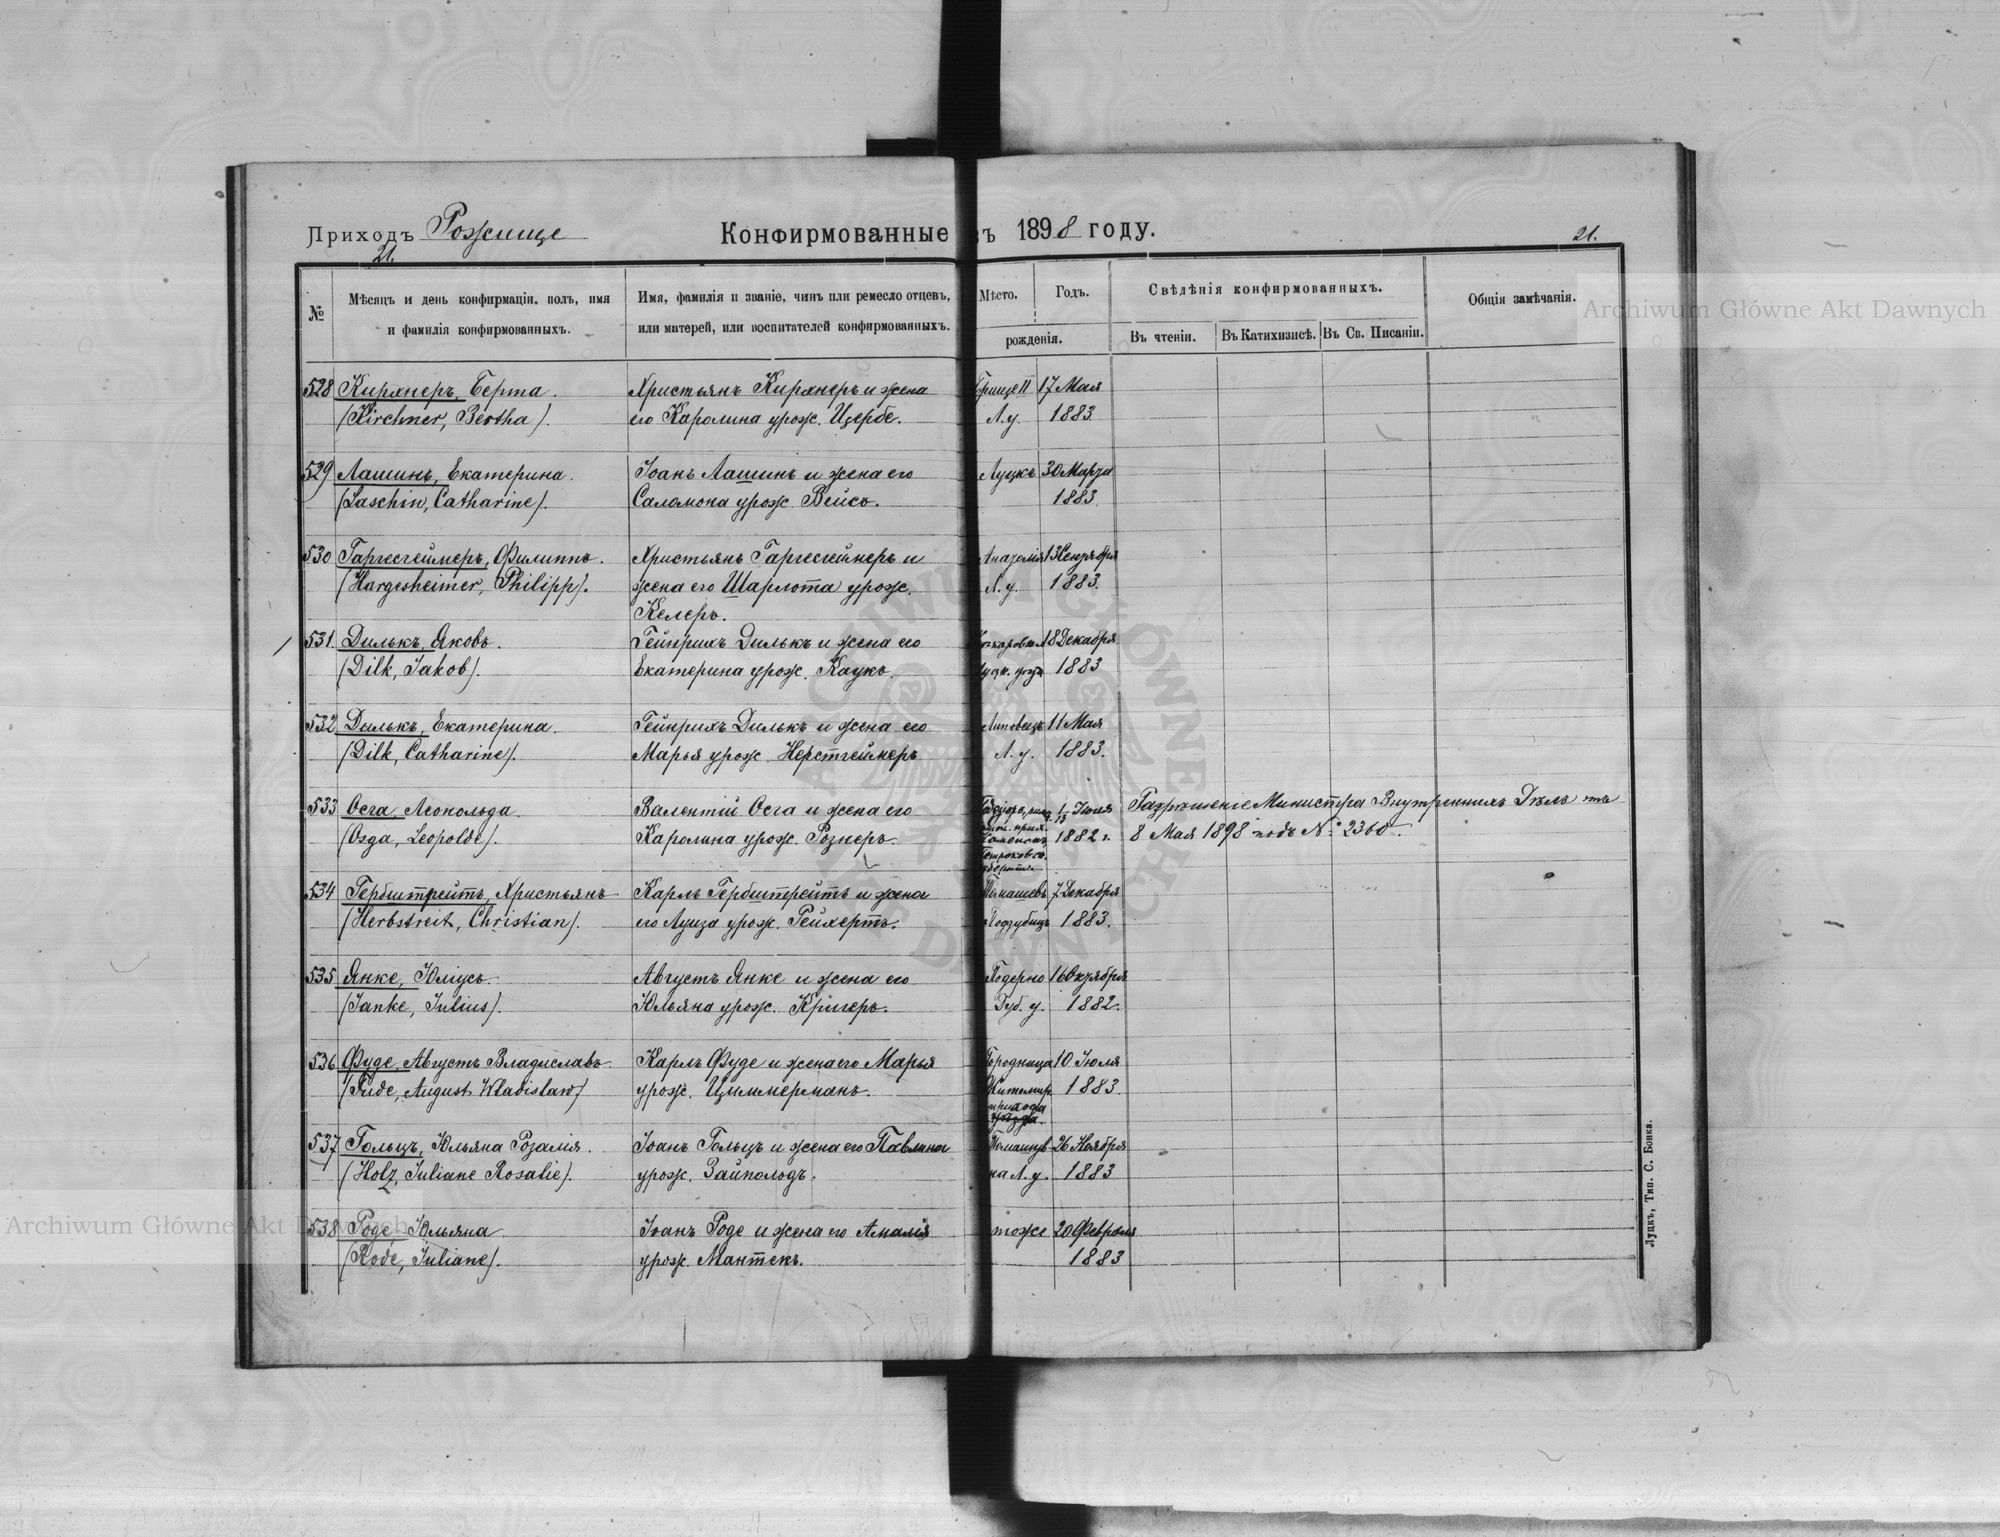 Приходъ Рожище
Конфирмованные въ 1898 году.
21.
21.
№
Мѣсяцъ и день конфирмаціи, полъ, имя
и фамилія конфирмованныхъ.
Имя, фамилія и званіе, чинъ или ремесло отцевъ,
или матерей, или воспитателей конфирмованныхъ.
Мѣсто.
Годъ.
рожденія.
Свѣдѣнія конфирмованныхъ.
Въ чтеніи.
Въ Катихизисѣ.
Въ Св. Писаніи.
Общія замѣчанія.
528 Кирхнеръ, Берта. Христьянъ Кирхнеръ и жена 17 Мая
(Kirchner, Bertha). его Каролина урож. Цербе. Л. у. 1883.
529 Лашинъ, Екатерина. Іоанъ Лашинъ и жена его Луцкъ 30 Марта
(Laschin, Catharine). Саломона урож. Вейсъ. 1883.
530 Гаргесгеймеръ, Филиппъ. Христьянъ Гаргесгеймеръ и Анатолія 13 Сентября
(Hargesheimer, Philipp). жена его Шарлота урож. Л. у. 1883.
Келеръ.
531 Дилькъ, Яковъ. Гейнрихъ Дилькъ и жена его 18 Декабря
(Dilk, Jakob). Екатерина урож. Каукъ. 1883
532 Дилькъ, Екатерина. Гейнрихъ Дилькъ и жена его Липовецъ 11 Мая
(Dilk, Catharine). Марья урож. Нерстгеймеръ Л. у. 1883.
533 Осга, Леопольда. Валентій Осга и жена его 1/13 Іюля Разрѣшеніе Министра Внутреннихъ Дѣлъ отъ
(Osga, Leopolde). Каролина урож. Рознеръ. 1882 г. 8 Мая 1898 подъ № 2300.
534 Гербштрейтъ, Христьянъ Карлъ Гербштрейтъ и жена Томашевъ 7 Декабря
(Herbstreit, Christian). его Луиза урож. Рейхертъ. Поддубицъ 1883.
535 Янке, Юліусъ. Августъ Янке и жена его 16 Октября
(Janke, Julius). Юльяна урож. Кригеръ. Дуб. у. 1882.
536 Фуде, Августъ Владиславъ. Карлъ Фуде и жена его Марья Городница 10 Іюля
(Fude, August Wladislaw) урож. Циммерманъ. Житомир. 1883.
прихода
537 Гольцъ, Юльяна Розалія. Іоанъ Гольцъ и жена его Павлина 26 Ноября
(Holz, Juliane Rosalie). урож. Зайполодъ. ка Л. у. 1883
538 Роде, Юльяна Іоанъ Роде и жена его Амалія тоже 20 Февраля
(Rode, Juliane). урож. Мантекъ. 1883
Луцкъ, Тип. С. Бонка.
Archiwum Główne Akt Dawnych
Archiwum Główne Akt Dawnych
ARCHIWUM GŁÓWNE AKT DAWNYCH